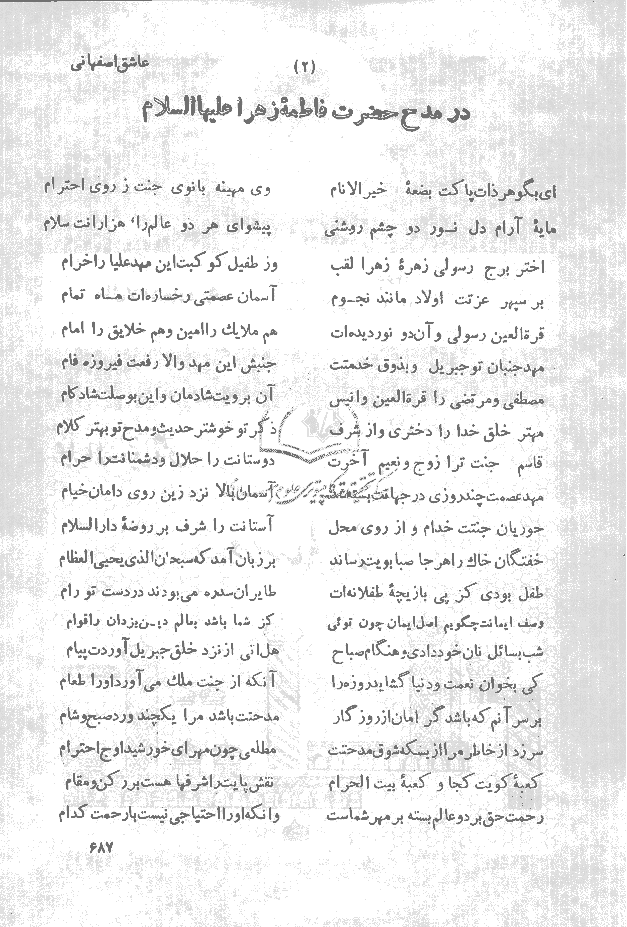 عاشق اصفهانی
(۲)
در مدح حضرت فاطمهٔ زهرا علیها السلام
ای بگوهر ذات پاکت بضعهٔ خیر الانام وی مهینه بانوی جنت ز روی احترام
مایهٔ آرام دل نور دو چشم روشنی پیشوای هر دو عالم را، هزارانت سلام
اختر برج رسولی زهرهٔ زهرا لقب وز طفیل کوکبت این مهد علیا را خرام
بر سپهر عزتت اولاد مانند نجوم آسمان عصمتی رخساره‌ات ماه تمام
قرة العین رسولی و آن دو نور دیده‌ات هم ملایك را امین وهم خلایق را امام
مهد جنبان تو جبریل و بذوق خدمتت جنبش این مهد والا رفعت فیروزه فام
مصطفی و مرتضی را قرة العین و انیس آن برویت شادمان و این بوصلت شادکام
مهتر خلق خدا را دختری و از شرف ذکر تو خوشتر حدیث و مدح تو بهتر کلام
قاسم جنت ترا زوج و نعیم آخرت دوستانت را حلال و دشمنانت را حرام
مهد عصمت چند روزی در جهانت آسمان بالا نزد زین روی دامان خیام
حوریان جنتت خدام و از روی محل آستانت را شرف بر روضهٔ دار السلام
خفتگان خاك راهر جا صبا بویت رساند بر زبان آمد که سبحان الذی یحیی العظام
طفل بودی کز پی بازیچهٔ طفلانه‌ات طایران سدره می‌بودند در دست تو رام
وصف ایمانت چگویم اصل ایمان چون توئی کز شما باشد بعالم دین یزدان را قوام
شب بسائل نان خود دادی و هنگام صباح هل اتی از نزد خلق جبریل آوردت پیام
کی بخوان نعمت دنیا گشاید روزه را آنکه از جنت ملك می‌آورد او را طعام
بر سر آنم که باشد گر امان از روزگار مدحتت باشد مرا یکچند ورد صبح و شام
سر زد از خاطر مرا از بسکه شوق مدحتت مطلعی چون مهر ای خورشید اوج احترام
کعبهٔ کویت کجا و کعبهٔ بیت الحرام نقش پایت را شرفها هست بر رکن و مقام
رحمت حق بر دو عالم بسته بر مهر شماست وانکه او را احتیاجی نیست با رحمت کدام
۶۸۷